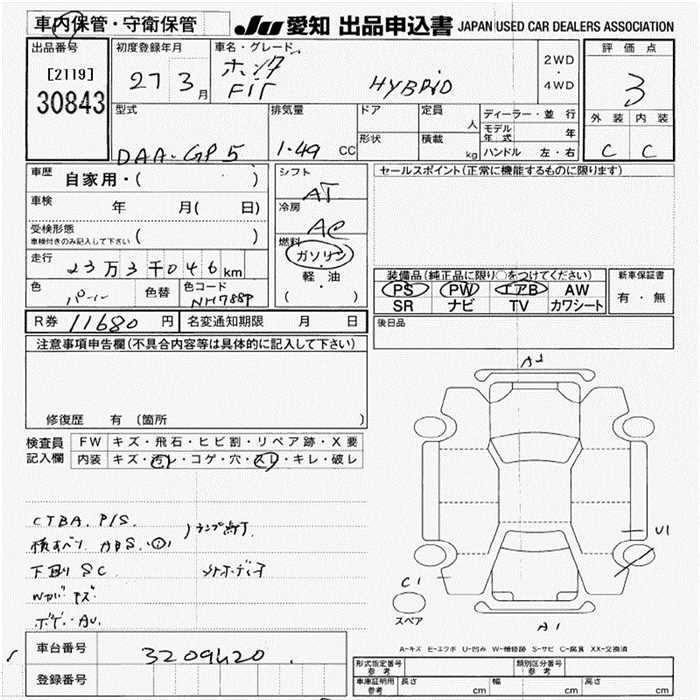 車内保管・守衛保管
JU 愛知 出品申込書 JAPAN USED CAR DEALERS ASSOCIATION
出品番号
[2119]
30843
初度登録年月
27 3月
車名・グレード
ホンダ
FIT HYBRID
2WD
・
4WD
評価点
3
外装 内装
C C
型式
DAA-GP5
排気量
1.49 CC
ドア
形状
定員
人
積載
kg
ディーラー・並行
モデル年式 年
ハンドル 左・右
車歴 自家用・( )
車検 年 月( 日)
受検形態
車検付きのみ記入して下さい ( )
走行 23万3千046km
色 パール 色替
色コード
NH788P
シフト
AT
冷房
AC
燃料
ガソリン
・
軽・油
( )
セールスポイント(正常に機能するものに限ります)
装備品(純正品に限り○をつけてください)
PS PW エアB AW
SR ナビ TV カワシート
新車保証書
有・無
R券 11680円
名変通知期限 月 日
後日品
注意事項申告欄(不具合内容等は具体的に記入して下さい)
修復歴 有 (箇所 )
検査員
記入欄
FW キズ・飛石・ヒビ割・リペア跡・X要
内装 キズ・汚レ・コゲ・穴・スレ・キレ・破レ
CTBA. P/S.
ABS.
ランプ点灯
下廻り SC
A2
U1
C1
A1
スペア
A-キズ E-エクボ U-凹み W-補修跡 S-サビ C-腐食 XX-交換済
車台番号 3209420
登録番号
形式指定番号
参考
類別区分番号
参考
車庫証明用
参考
長さ cm 幅 cm 高さ cm